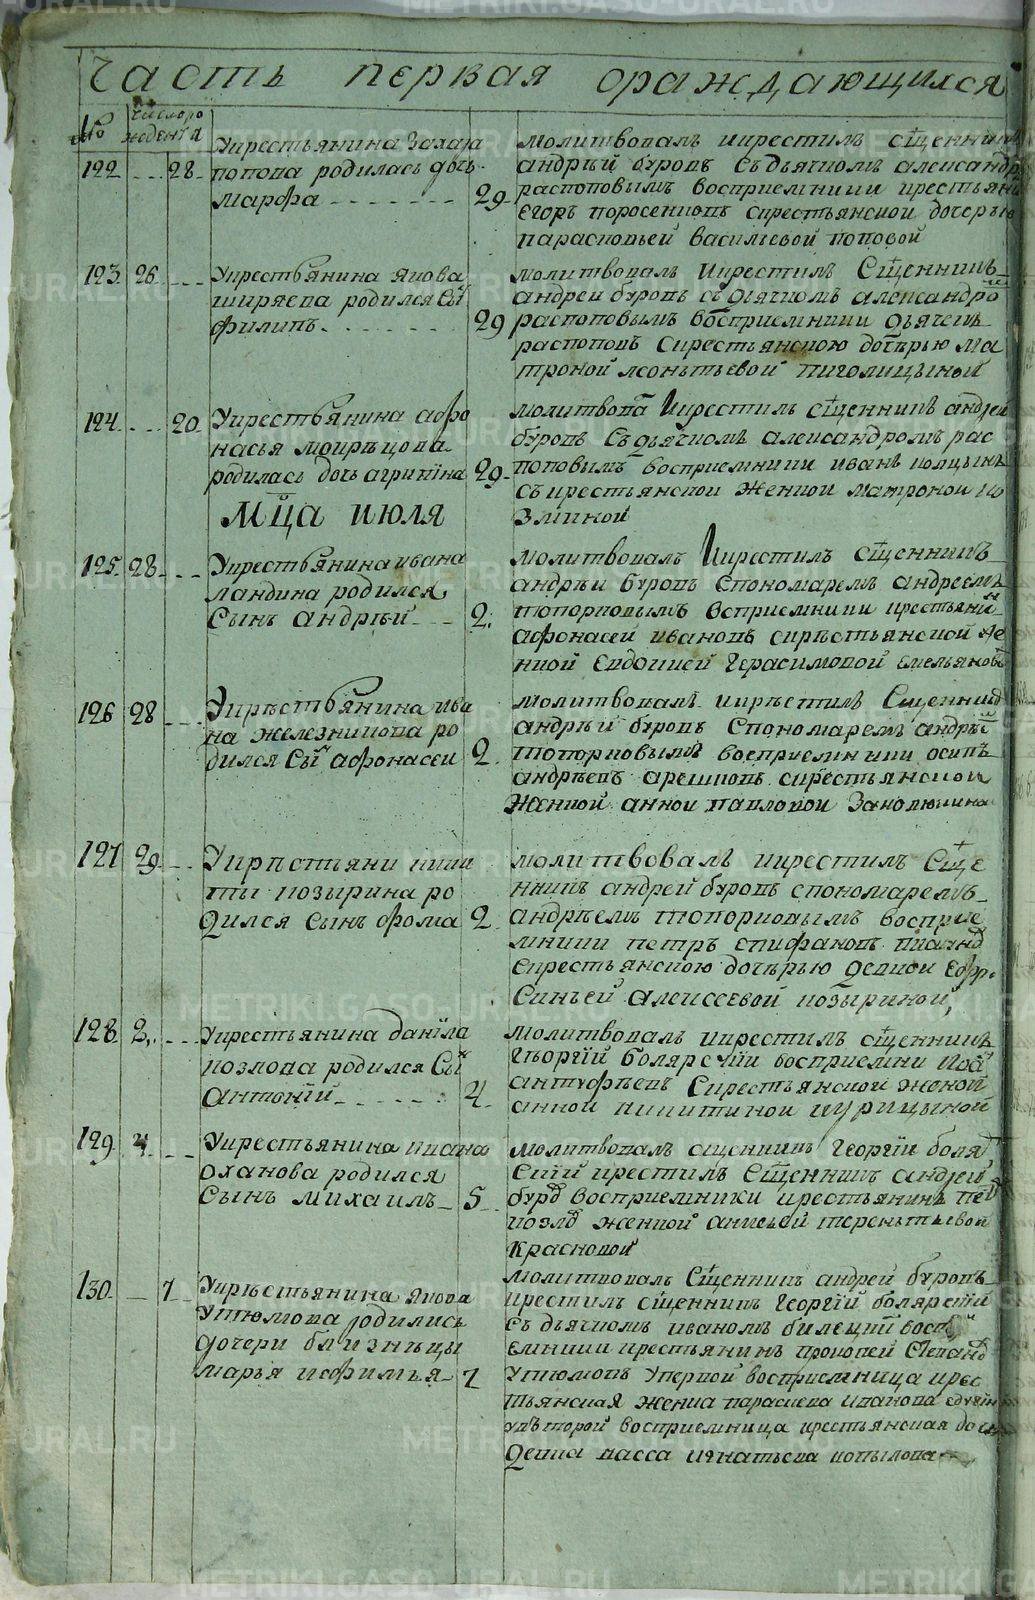 Часть первая ораждающихся
№ число рождения
122 28 Укрестьянина Захара
попова родилась дочь
марфа 29
молитвовалъ икрестилъ сщенникъ
андрѣй буровъ съдьячкомъ александр
распоповымъ восприемники крестьяни
Егоръ поросенковъ скрестьянской дочерью
парасковьей васильевой поповой
123 26 Укрестьянина якова
ширяева родился сы
филипъ 29
молитвовалъ икрестилъ Сщенникъ
андреи буровъ съдьячкомъ александро
распоповымъ восприемники дьячекъ
распоповъ скрестьянскою дочѣрью ма
троной леонтьевой пиголицыной
124 20 Укрестьянина афо
насья мокрѣцова
родилась дочь агрипина 29
молитвова икрестилъ сщенникъ андреи
буровъ съдьячкомъ александромъ рас
поповымъ восприемники иванъ
съкрестьянской женкой матроной ко
злихой
Мца июля
125 28 Укрестьянина ивана
ландина родился
сынъ андрѣй 2
молитвовалъ икрестилъ сщенникъ
андрѣи буровъ спономаремъ андреемъ
топорковымъ восприемники крестьяни
афонасеи ивановъ скрѣстьянской же
нкой Евдокиеи герасимовой емельянов
126 28 Укрѣстьянина ива
на железникова ро
дился сы афонасеи 2
молитвовалъ икрѣстилъ Сщенник
андрѣи буровъ спономаремъ андрѣе
топорковымъ восприемники осипъ
андрѣевъ арешковъ скрестьянской
женкой анной павловой
127 29 Укрпстьяни ники
ты козырина ро
дился сынъ фома 2
молитвовалъ икрестилъ сще
нникъ андрей буровъ спономаремъ
андрѣемъ топорковымъ восприе
мники петръ епифановъ
скрестьянскою дочѣрью девкой Ефро
синьей алексеевой козыриной
128 2 Укрестьянина данила
козлова родился сы
антоній 4
молитвовалъ икрестилъ сщенникъ
георгій болярскій восприемни
антуфьевъ скрестьянской женой
анной никитиной курицыной
129 4 Укрестьянина ивана
оханова родился
сынъ михаилъ 5
молитвовалъ сщенникъ георгіи боляр
скій крестилъ сщенникъ андреи
буро восприемники крестьянинъ
женкой анисьей терентьевой
красновой
130 7 Укрѣстьянина якова
утюмова родились
дочери близнецы
марья иефимья 7
молитвовалъ Сщенникъ андрей буровъ
крестилъ сщенникъ георгій болярскій
съдьячкомъ иваномъ билецкий воспри
емники крестьянинъ прокопей Степано
утюмовъ упервой восприемница крес
тьянская женка параскева иванова
увторой восприемница крестьянская доч
девка васса игнатьева копылова